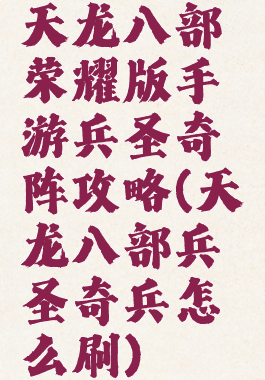 天龙八部
荣耀版手
游兵圣奇
阵攻略(天
龙八部兵
圣奇兵怎
么刷)